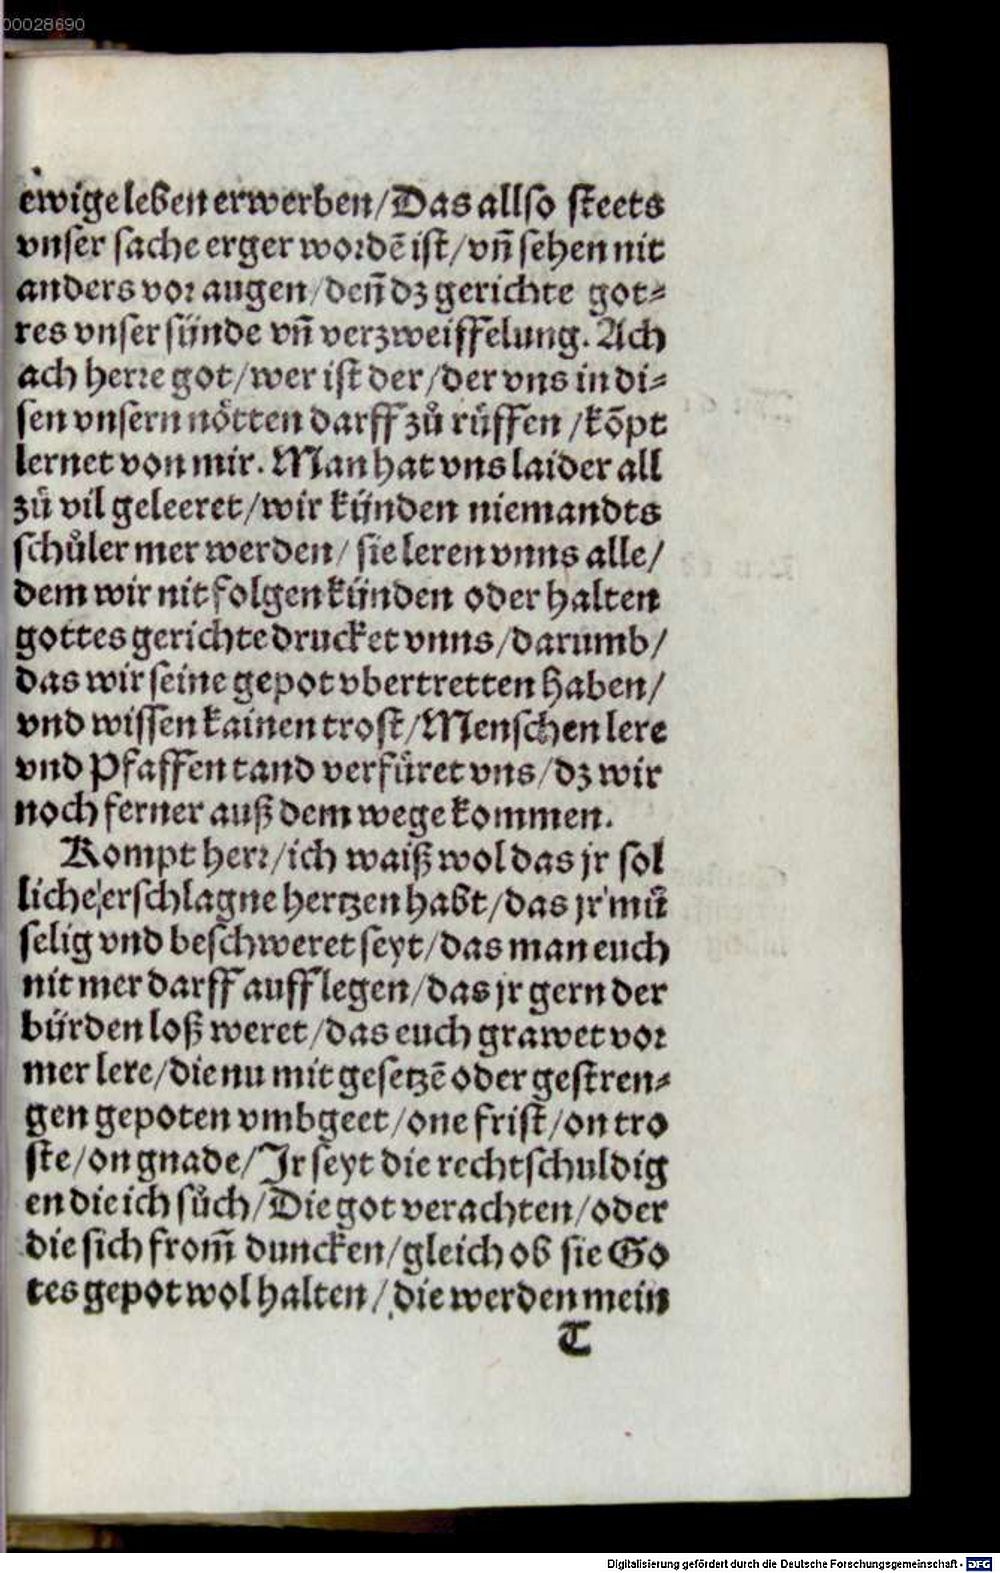 00028690
ewige leben erwerben/Das allso steets
vnser sache erger wordē ist/vn̄ sehen nit
anders vor augen/den̄ dz gerichte got⸗
res vnser sünde vn̄ verzweiffelung. Ach
ach herre got/wer ist der/der vns in di⸗
sen vnsern nötten darff zů rüffen/kōpt
lernet von mir. Man hat vns laider all
zů vil geleeret/wir künden niemandts
schůler mer werden/ sie leren vnns alle/
dem wir nit folgen künden oder halten
gottes gerichte drucket vnns/darumb/
das wir seine gepot vbertretten haben/
vnd wissen kainen trost/Menschen lere
vnd Pfaffen tand verfüret vns/dz wir
noch ferner auß dem wege kommen.
Kompt herr/ich waiß wol das jr sol
liche erschlagne hertzen habt/das jr mů
selig vnd beschweret seyt/das man euch
nit mer darff auff legen/das jr gern der
bürden loß weret/das euch grawet vor
mer lere/die nu mit gesetzē oder gestren⸗
gen gepoten vmbgeet/one frist/on tro
ste/on gnade/Jr seyt die recht schuldig
en die ich sůch/Die got verachten/oder
die sich from̄ duncken/gleich ob sie Go
tes gepot wol halten/die werden mein
T
Digitalisierung gefördert durch die Deutsche Forschungsgemeinschaft - DFG